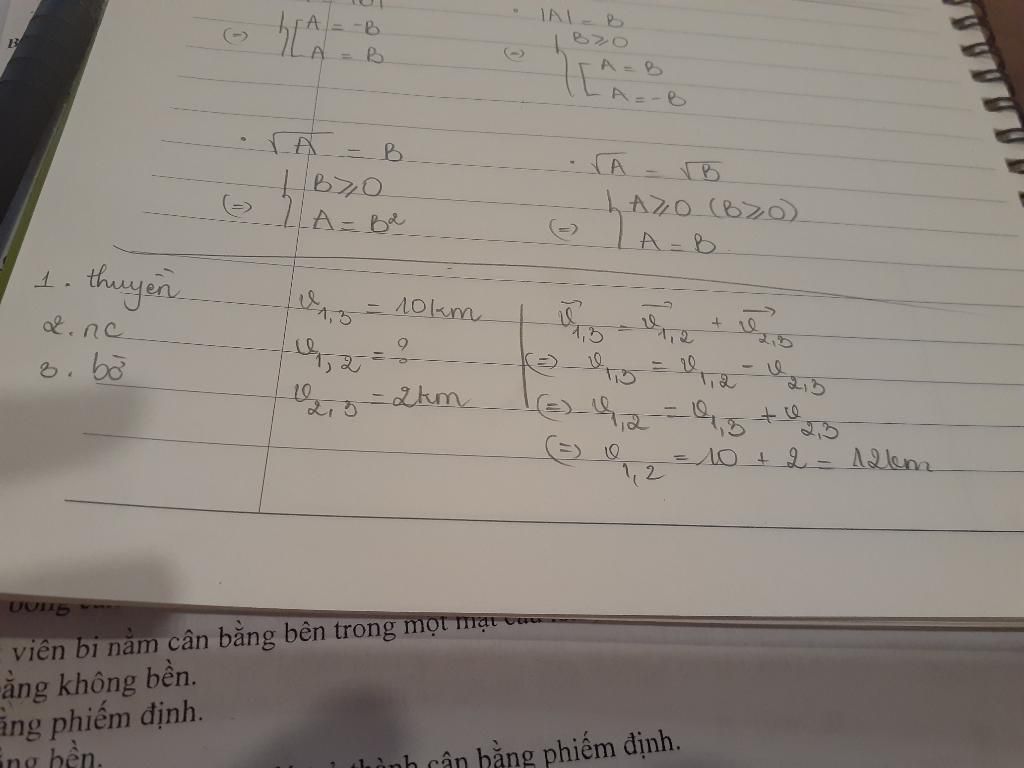 (=) A = -B
A = B
• |A| = B
(=) B ≥ 0
A = B
A = -B
• √A = B
(=) B ≥ 0
A = B²
• √A = √B
(=) A ≥ 0 (B ≥ 0)
A = B
1. thuyền
2. nc
3. bờ
v1,3 = 10km
v1,2 = ?
v2,3 = 2km
v⃗1,3 = v⃗1,2 + v⃗2,3
(=) v1,3 = v1,2 - v2,3
(=) v1,2 = v1,3 + v2,3
(=) v1,2 = 10 + 2 = 12km
viên bi nằm cân bằng bên trong một mặt
ằng không bền.
ằng phiếm định.
ng bền.
thành cân bằng phiếm định.